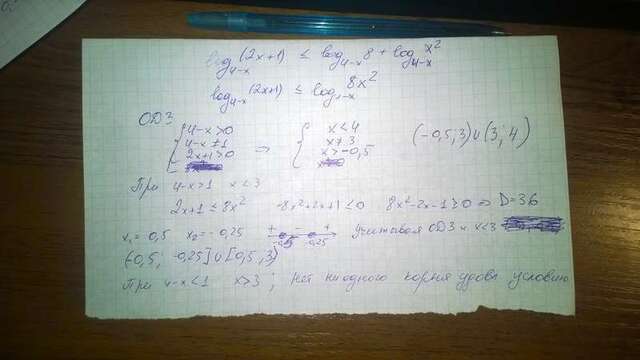 log₄₋ₓ(2x+1) ≤ log₄₋ₓ8 + log₄₋ₓx²
log₄₋ₓ(2x+1) ≤ log₄₋ₓ8x²
ОДЗ
{ 4-x>0
4-x≠1
2x+1>0
⇒ { x<4
x≠3
x>-0,5
(-0,5; 3) ∪ (3; 4)
При 4-x>1 x<3
2x+1≤8x² -8x²+2x+1≤0 8x²-2x-1≥0 ⇒ D=36
x₁=0,5 x₂=-0,25 + - + Учитывая ОДЗ и x<3
(-0,5; -0,25] ∪ [0,5; 3)
При 4-x<1 x>3; нет ни одного корня удовл условию